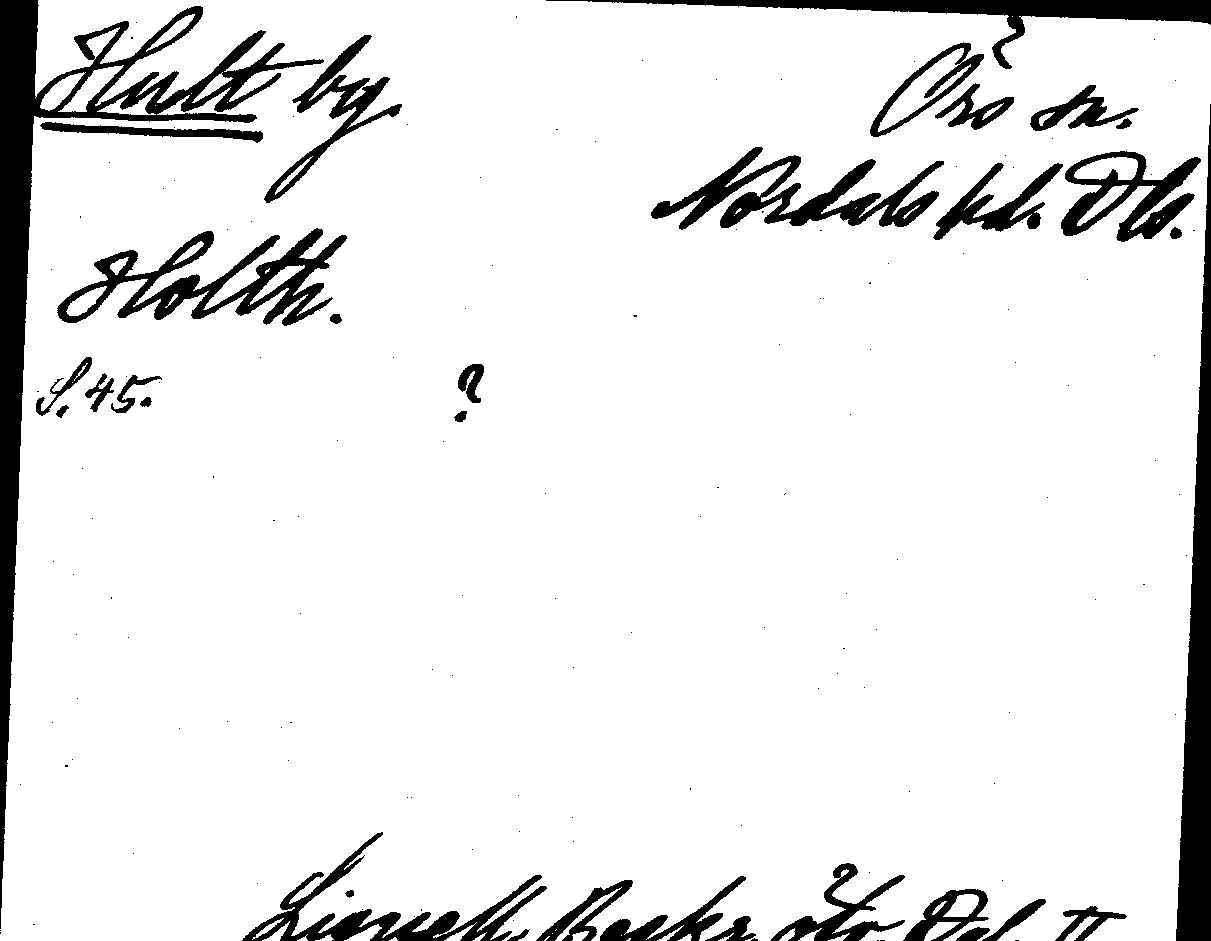 Hult by.
Örs sn.
Nordals hd. Dls.
Holth.
S. 45. ?
Lignell, Beskr. öfv. Dal. II